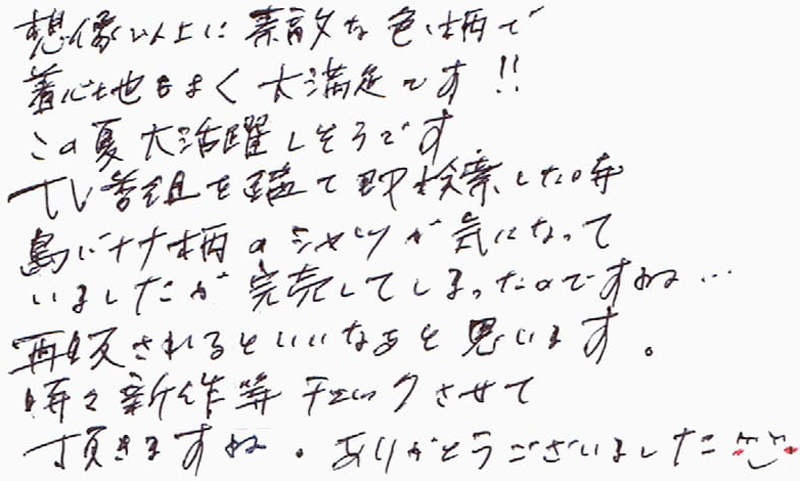 想像以上に素敵な色柄で
着心地もよく大満足です!!
この夏大活躍しそうです
TV番組を鑑て即検索した時
島バナナ柄のシャツが気になって
いましたが完売してしまったのですね…
再販されるといいなぁと思います。
時々新作等チェックさせて
頂きますね。ありがとうございました